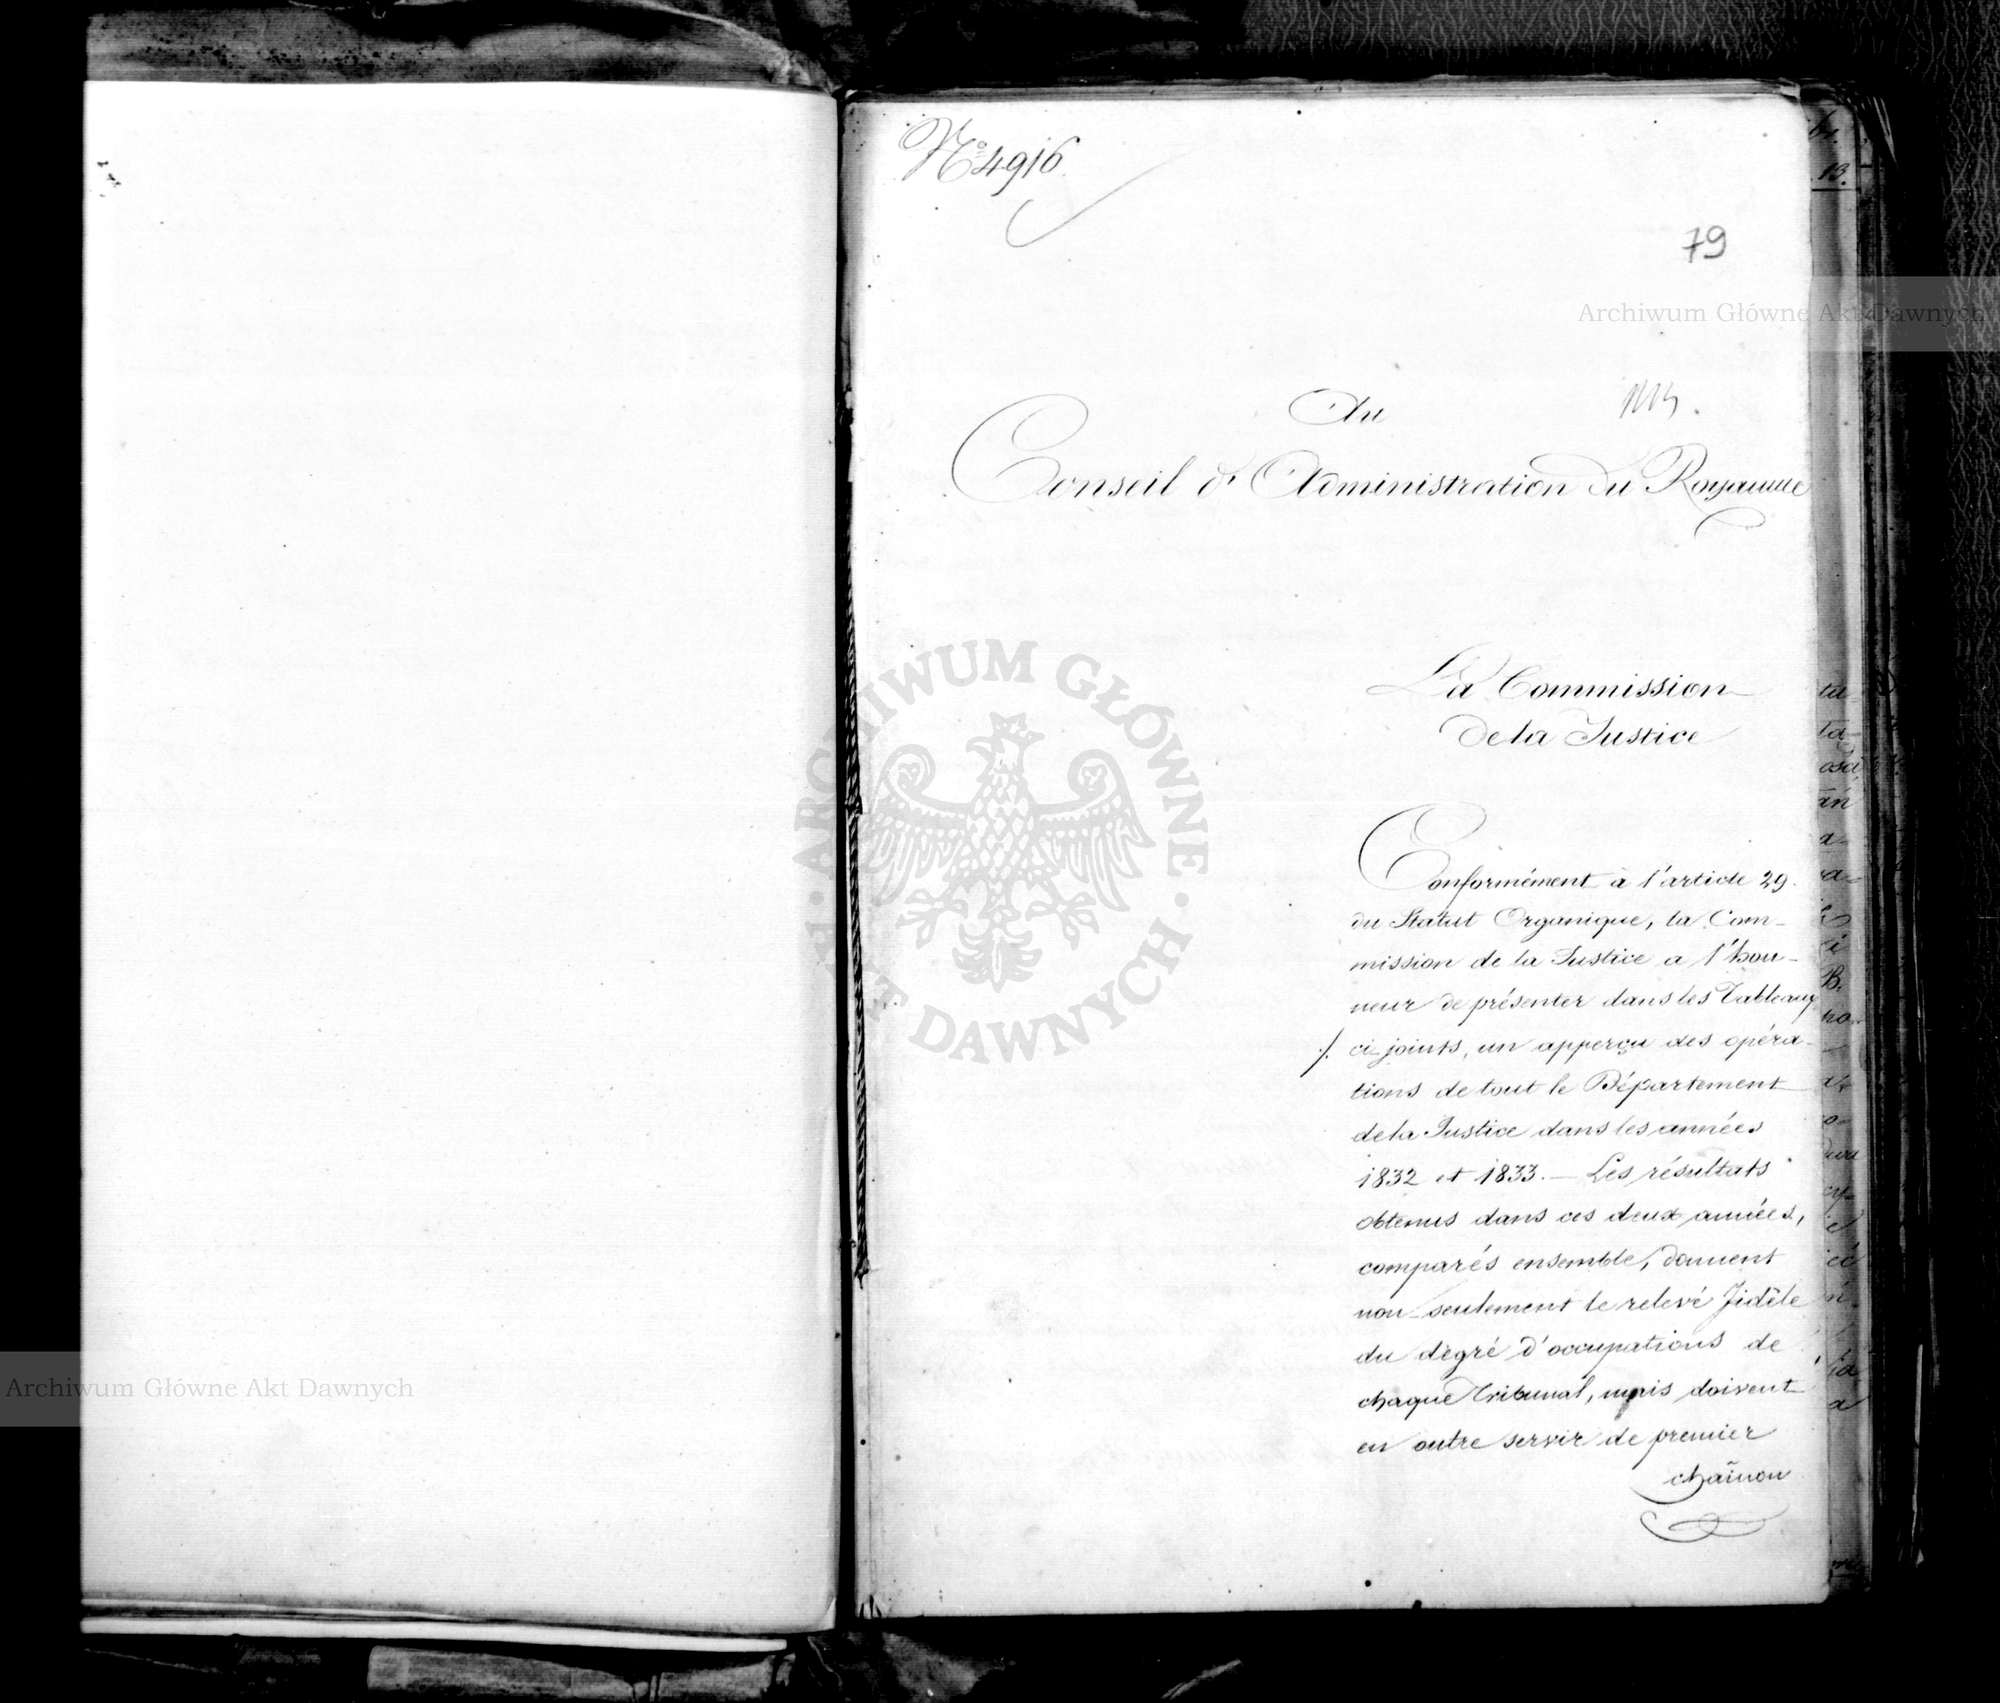 No 4916
79
Au
Conseil d'Administration du Royaume
La Commission
de la Justice
Conformément à l'article 29.
du Statut Organique, la Com-
mission de la Justice a l'hon-
neur de présenter dans les Tableaux
./. ci-joints, un apperçu des opéra-
tions de tout le Département
de la Justice dans les années
1832 et 1833. — Les résultats
obtenus dans ces deux années,
comparés ensemble, donnent
non-seulement le relevé fidèle
du dégré d'occupations de
chaque Tribunal, mais doivent
en outre servir de premier
chaînon
Archiwum Główne Akt Dawnych
ARCHIWUM GŁÓWNE AKT DAWNYCH
Archiwum Główne Akt Dawnych